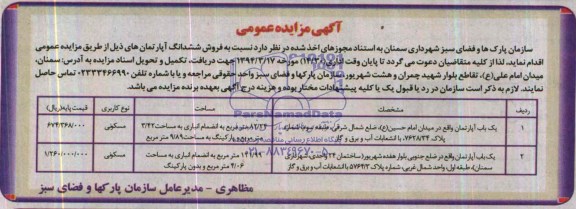 آگهی مزایده عمومی
سازمان پارک ها و فضای سبز شهرداری سمنان به استناد مجوزهای اخذ شده در نظر دارد نسبت به فروش ششدانگ آپارتمان های ذیل از طریق مزایده عمومی
اقدام نماید، لذا از کلیه متقاضیان دعوت می گردد تا پایان وقت اداری (۱۴/۳۰) مورخه ۱۳۹۴/۳/۱۷ جهت دریافت، تکمیل و تحویل اسناد مزایده به آدرس: سمنان،
میدان امام علی(ع)، تقاطع بلوار شهید چمران و هشت شهریور، سازمان پارکها و فضای سبز واحد حقوقی مراجعه و یا با شماره تلفن ۰۲۳۳۳۴۶۶۹۹۰ تماس حاصل
نمایند. لازم به ذکر است سازمان در رد یا قبول یک یا کلیه پیشنهادات مختار بوده و هزینه درج آگهی بعهده برنده مزایده می باشد.
ردیف مشخصات مساحت نوع کاربری قیمت پایه(ریال)
۱ یک باب آپارتمان واقع در میدان امام حسین(ع)، ضلع شمال شرقی، طبقه نیم با شماره متر مربع به انضمام انباری به مساحت ۳/۴۲ مسکونی ۶۷۴/۳۶۸/۰۰۰
پلاک ۷۶۲۸/۳۴، با انشعابات آب و برق و گاز متر مربع و پارکینگ به مساحت ۹/۸۹ متر مربع
۲ یک باب آپارتمان واقع در ضلع جنوبی بلوار هفده شهریور (ساختمان ۲۴ واحدی شهرداری ۱۴۱/۹۹ متر مربع به انضمام انباری به مساحت مسکونی ۱/۲۶۰/۰۰۰/۰۰۰
سمنان)، طبقه اول، واحد شمال غربی، شماره پلاک ۵۷۶۴/۳ با انشعابات آب و برق و گاز ۴/۰۶ متر مربع و بدون پارکینگ
مظاهری - مدیرعامل سازمان پارکها و فضای سبز
ParsNamadData
۰۲۱-۸۸۳۴۹۶۷۰-۵